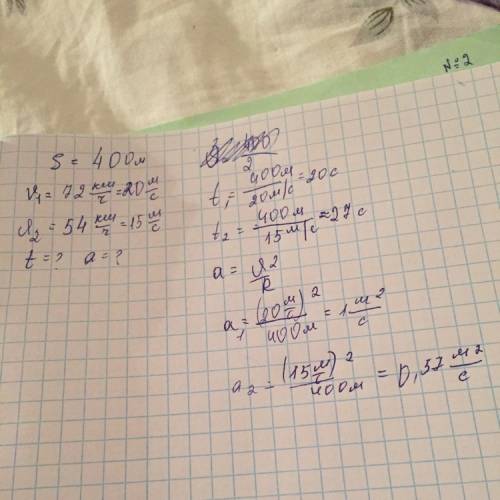 №2
S = 400м
V₁ = 72 км/ч = 20 м/с
V₂ = 54 км/ч = 15 м/с
t = ? a = ?
2
t₁ = 400м / 20м/с = 20с
t₂ = 400м / 15м/с ≈ 27с
a = V² / R
a₁ = (20 м/с)² / 400м = 1 м²/с
a₂ = (15 м/с)² / 400м = 0,57 м²/с